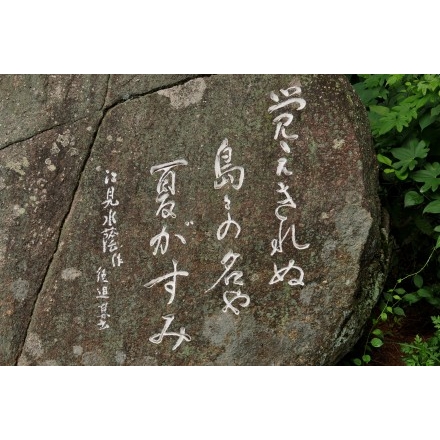 覚えきれぬ
島々の名や
夏がすみ
江見水蔭作